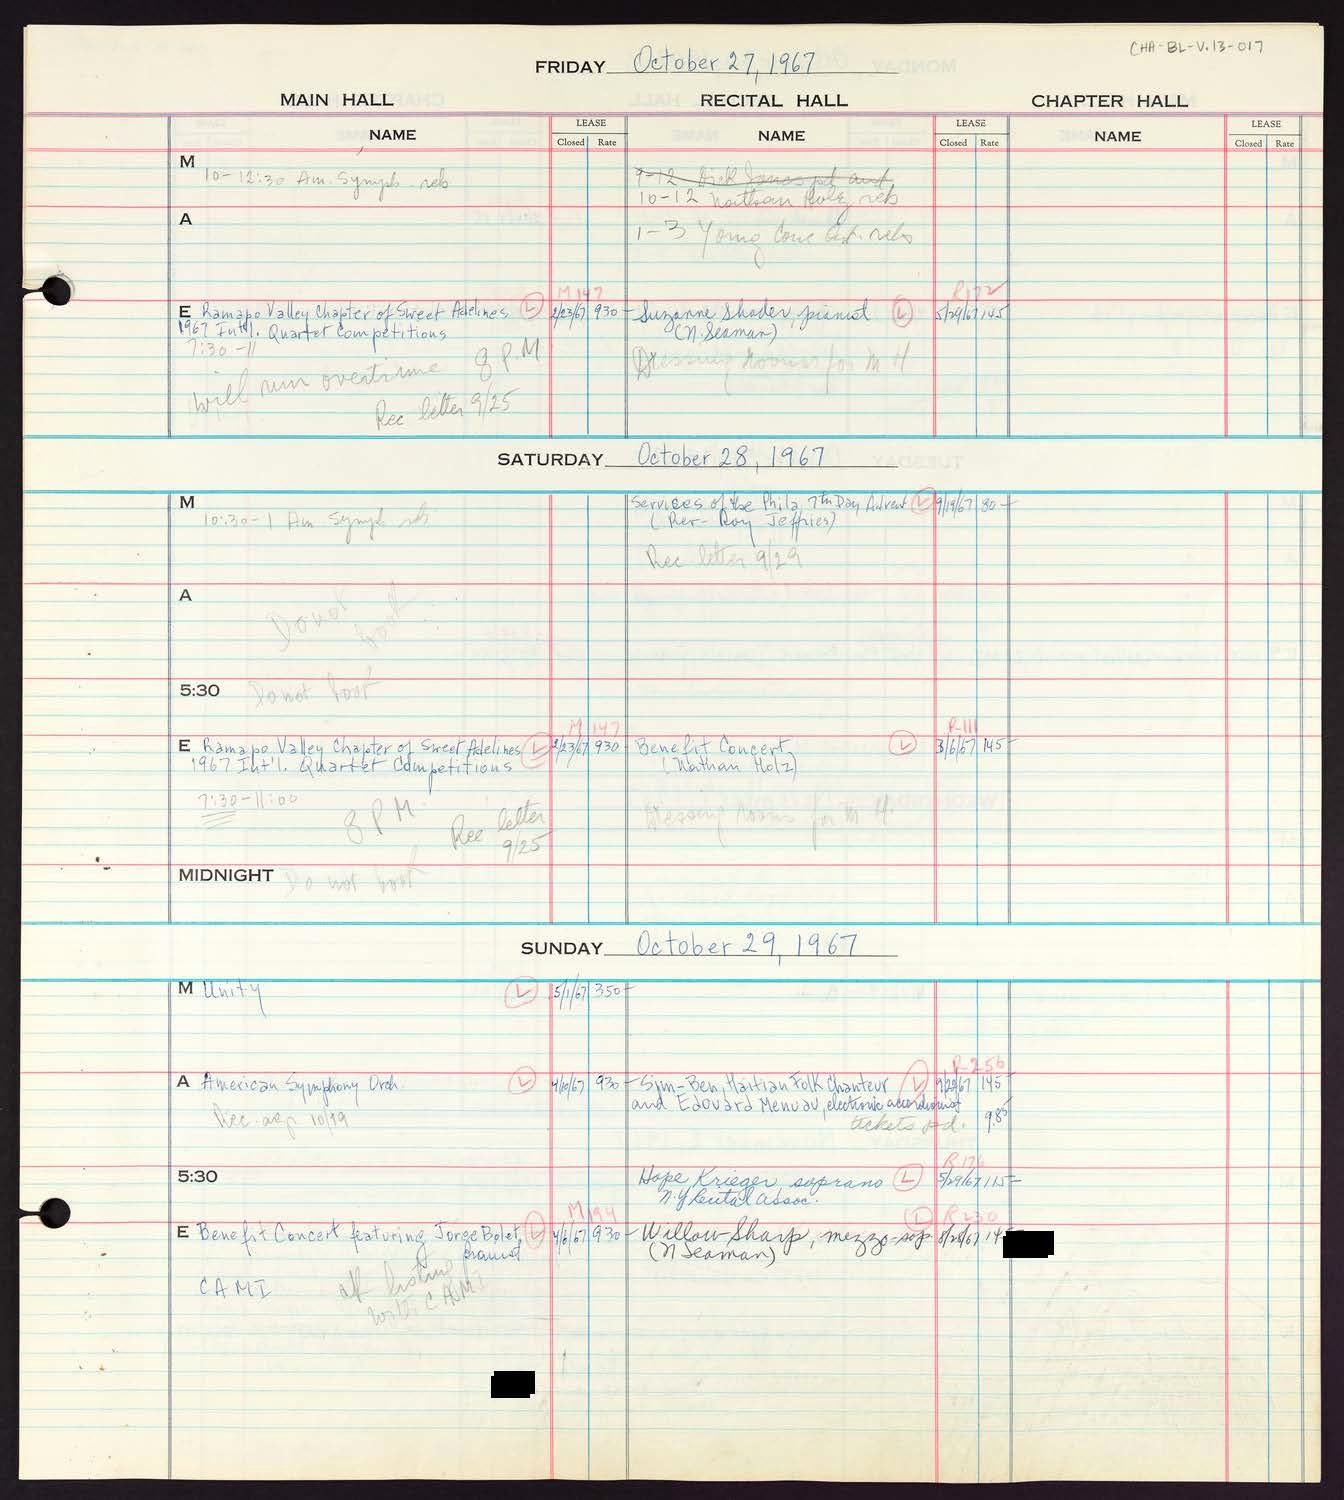 CHA-BL-V.13-017
FRIDAY October 27, 1967
MAIN HALL RECITAL HALL CHAPTER HALL
NAME LEASE NAME LEASE NAME LEASE
Closed Rate Closed Rate Closed Rate
M
10-12:30 Am. Symph. reb
9-12 Dick Jones pd and
10-12 Nathan Holz reb
A
1-3 Young Conc Art. reb
M 147 R172
E Ramapo Valley Chapter of Sweet Adelines L 2/23/67 930- Suzanne Shader, pianist L 5/29/67 145-
1967 Int'l. Quartet Competitions (N. Seaman)
7:30-11 Dressing rooms for M H
will run overtime 8 P.M
Rec letter 9/25
SATURDAY October 28, 1967
M Services of the Phila. 7th Day Advent L 9/19/67 80-
10:30-1 Am Symph reb (Per- Roy Jeffries)
Rec letter 9/29
A
Do not
book
5:30 Do not book
M 147 R-111
E Ramapo Valley Chapter of Sweet Adelines L 2/23/67 930- Benefit Concert L 3/6/67 145-
1967 Int'l. Quartet Competitions (Nathan Holz)
7:30-11:00 8 P M. Rec letter
9/25
Dressing rooms for M H.
MIDNIGHT Do not book
SUNDAY October 29, 1967
M Unity L 5/1/67 350-
R-256
A American Symphony Orch. L 4/10/67 930- Sim-Ben, Haitian Folk Chanteur L 9/22/67 145-
and Edouard Menuau, electronic accordionist
Rec. 10/19 tickets pd. 9.85
R-176
5:30 Hope Krieger, soprano L 5/29/67 115-
N.Y. Recital Assoc.
M 194 L R230
E Benefit Concert featuring Jorge Bolet, L 4/6/67 930- Willow Sharp, mezzo-sop 145
pianist (N Seaman)
CAMI all listing
with CAMI